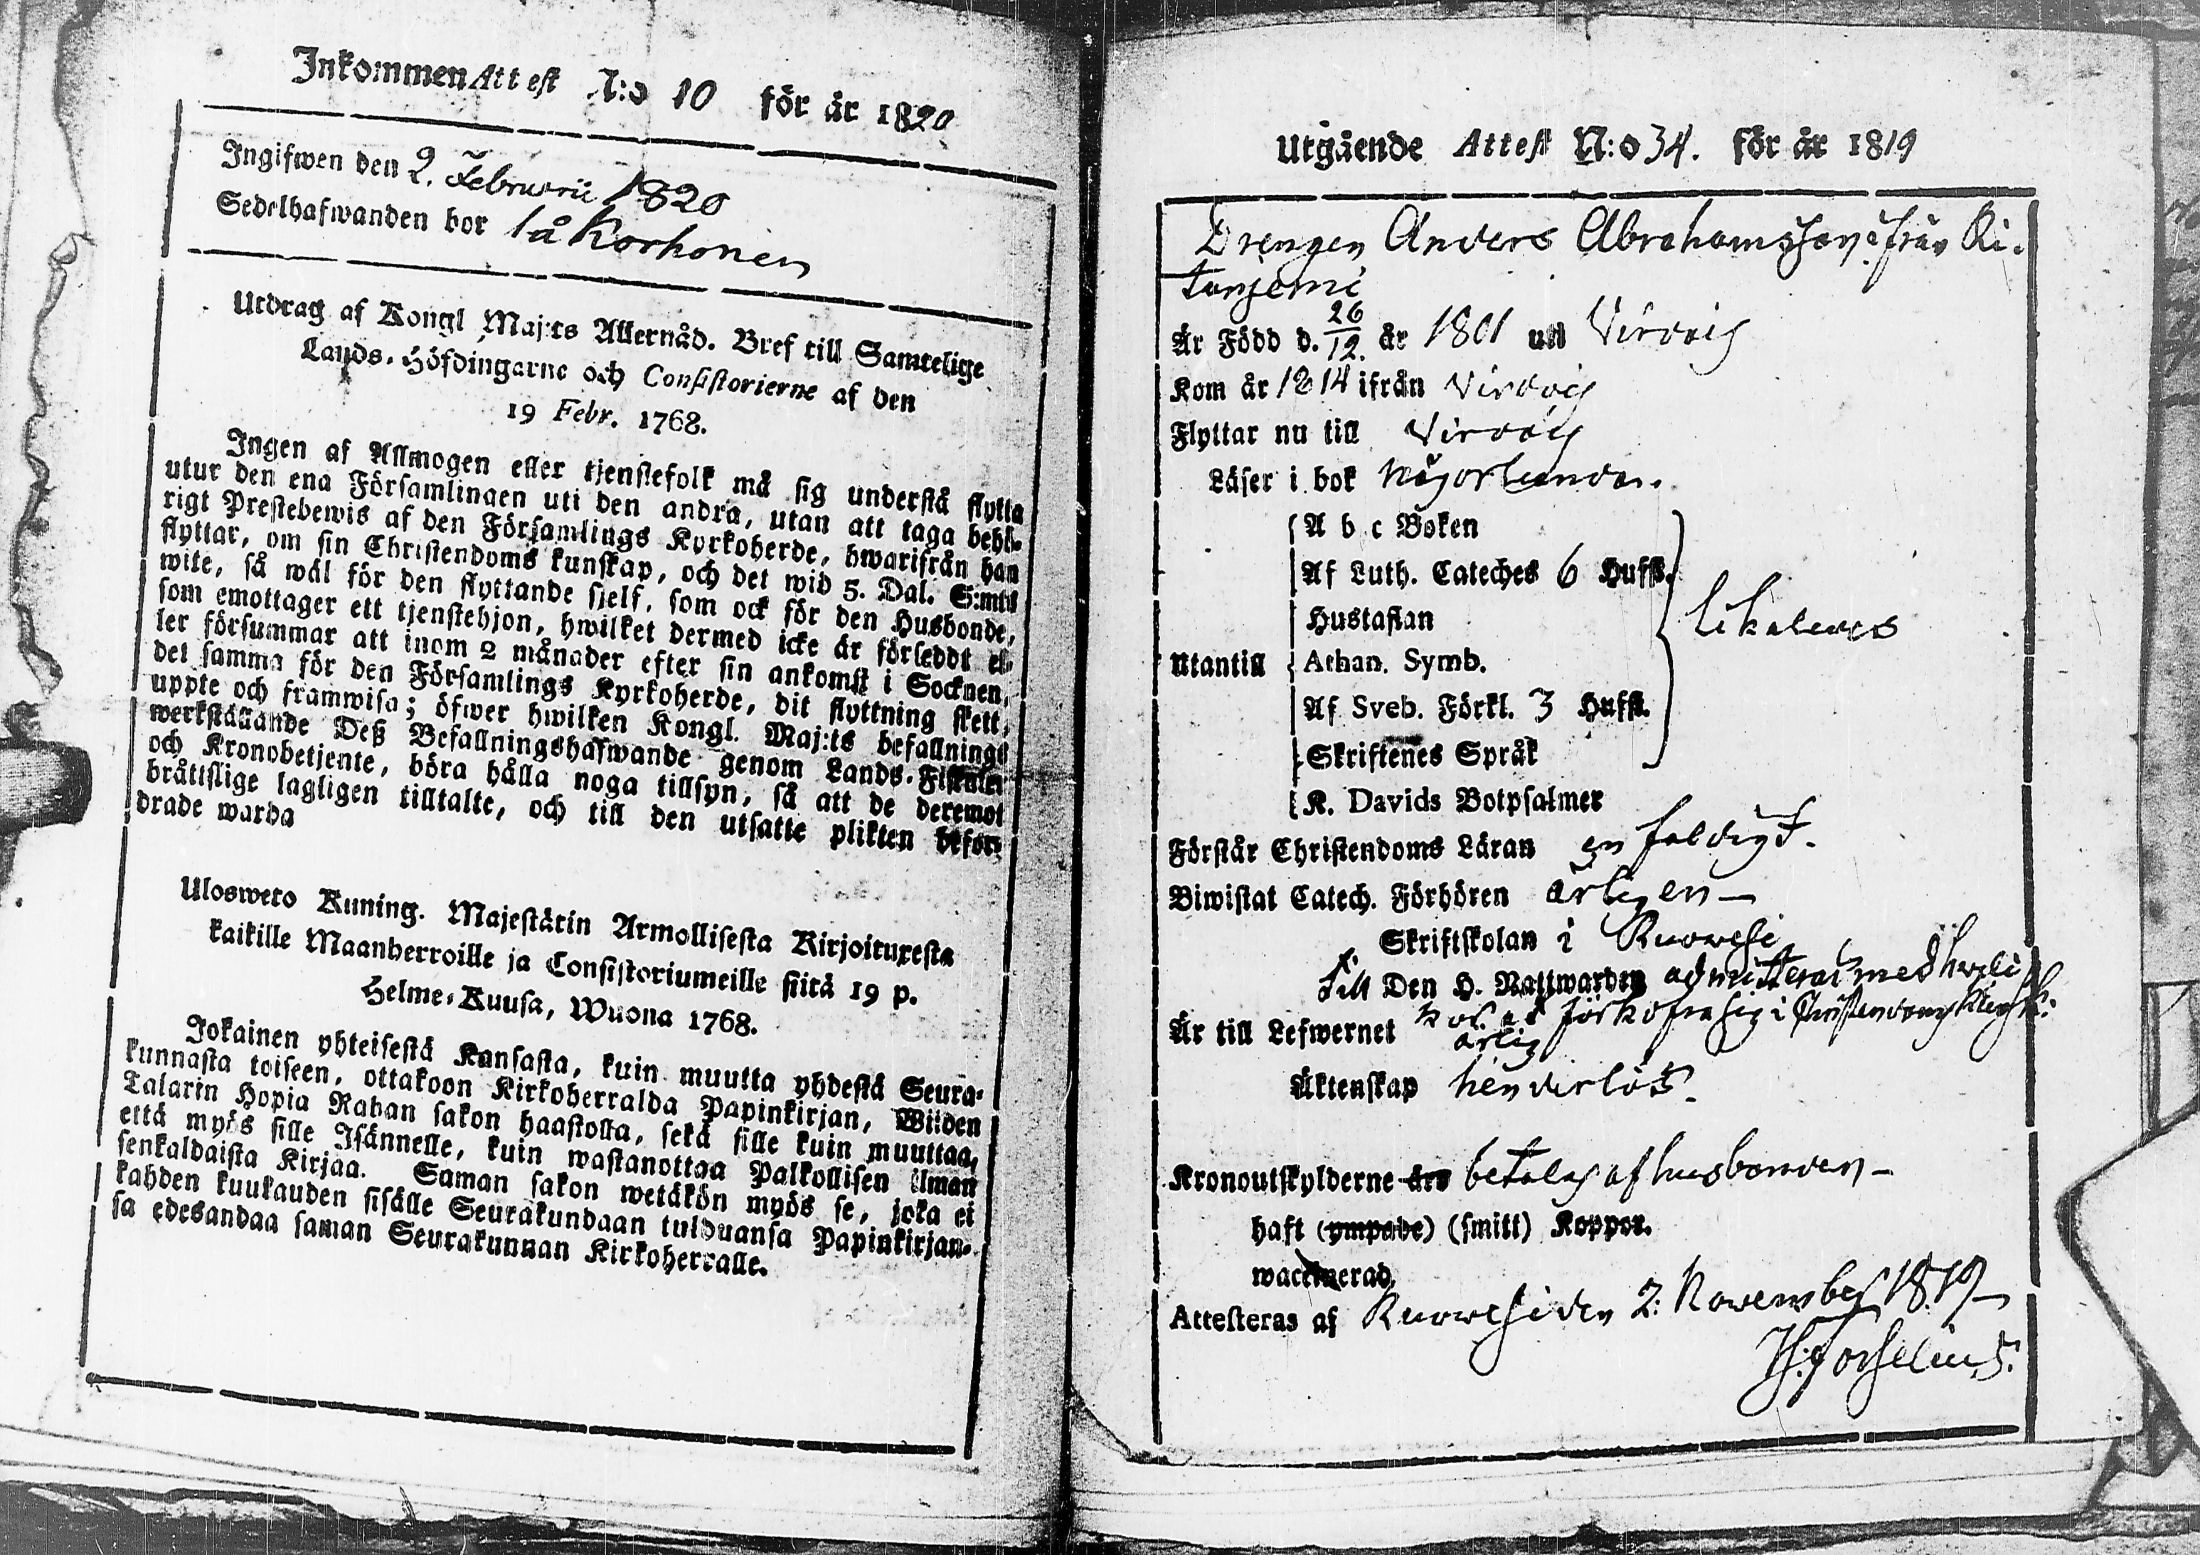 Inkommen Attest N:o 10 för år 1820
Ingifwen den 2. Februarii 1820
Sedelhafwanden bor på Korhonen
Utdrag af Kongl Maj:ts Allernåd. Bref till Samtelige
Lands-Höfdingarne och Consistorierne af den
19 Febr. 1768.
Ingen af Allmogen eller tjenstefolk må sig understå flytta
utur den ena Församlingen uti den andra, utan att taga behö-
rigt Prestebewis af den Församlings Kyrkoherde, hwarifrån han
flyttar, om sin Christendoms kunskap, och det wid 5. Dal. S:mts
wite, så wäl för den flyttande sjelf, som ock för den Husbonde,
som emottager ett tjenstehjon, hwilket dermed icke är försedt el-
ler försummar att inom 2 månader efter sin ankomst i Socknen,
det samma för den Församlings Kyrkoherde, dit flyttning skett,
uppte och framwisa; öfwer hwilken Kongl. Maj:ts befallnings
werkställande Deß Befallningshafwande genom Lands-Fiskaler
och Kronobetjente, böra hålla noga tillsyn, så att de deremot
bråttslige lagligen tilltalte, och till den utsatte plikten befor-
drade warda
Ulosweto Kuning. Majestätin Armollisesta Kirjoituxesta
kaikille Maanherroille ja Consistoriumeille siitä 19 p.
Helme-Kuusa, Wuona 1768.
Jokainen yhteisestä Kansasta, kuin muutta yhdestä Seura-
kunnasta toiseen, ottakoon Kirkoherralda Papinkirjan, Wiiden
Talarin Hopia Rahan sakon haastolla, sekä sille kuin muuttaa,
että myös sille Isännelle, kuin wastanottaa Palkollisen ilman
senkaldaista Kirjaa. Saman sakon wetäkön myös se, joka ei
kahden kuukauden sisälle Seurakundaan tulduansa Papinkirjan-
sa edesandaa saman Seurakunnan Kirkoherralle.
Utgående Attest N:o 34. för år 1819
Drengen Anders Abrahamsson från Ri-
taniemi
Är Född d. 26/12. år 1801 uti Virdois
Kom år 1814 ifrån Virdois
Flyttar nu till Virdois
Läser i bok någorlunda.
A b c Boken
Af Luth. Cateches 6 Hufst.
Hustaflan
Utantill Athan. Symb.
Af Sveb. Förkl. 3 Hufst.
Skriftenes Språk
K. Davids Botpsalmer
likaledes
Förstår Christendoms Läran enfaldigt.
Biwistat Catech. Förhören årligen —
Skriftskolan i Ruowesi
Till Den H. Nattwarden admitterad med hwilkor
at förkofra sig i Christendoms kunsk:
Är till Lefwernet ärlig
Äktenskap hinderlös.
Kronoutskylderne äro betalas af husbonden —
haft (ympade) (smitt) Koppor.
waccinerad,
Attesteras af Ruowesi den 2: November 1819
H: Forselius.